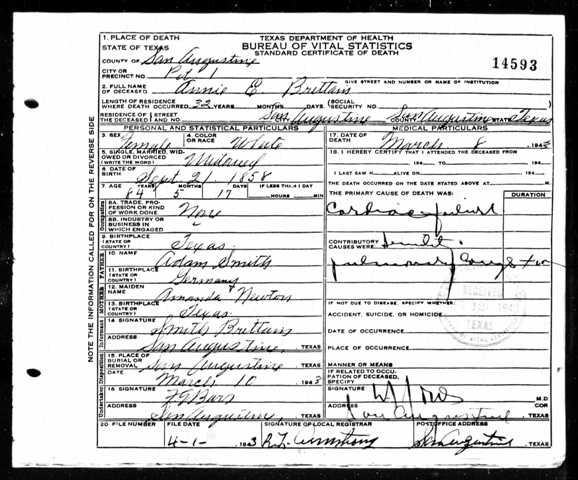 1. PLACE OF DEATH
STATE OF TEXAS
TEXAS DEPARTMENT OF HEALTH
BUREAU OF VITAL STATISTICS
STANDARD CERTIFICATE OF DEATH
COUNTY OF San Augustine
14593
CITY OR PRECINCT NO. Pct 1
GIVE STREET AND NUMBER OR NAME OF INSTITUTION
2. FULL NAME OF DECEASED Annie E Brittain
LENGTH OF RESIDENCE WHERE DEATH OCCURRED 32 YEARS MONTHS DAYS (SOCIAL SECURITY NO.
RESIDENCE OF THE DECEASED STREET AND NO. San Augustine San Augustine STATE Texas
PERSONAL AND STATISTICAL PARTICULARS
MEDICAL PARTICULARS
3. SEX Female 4. COLOR OR RACE White
17. DATE OF DEATH March 8 1943
5. SINGLE, MARRIED, WIDOWED OR DIVORCED (WRITE THE WORD) Widowed
18. I HEREBY CERTIFY THAT I ATTENDED THE DECEASED FROM
194 TO 194
6. DATE OF BIRTH Sept 21 1858
I LAST SAW H ALIVE ON 194
7. AGE 84 YEARS 5 MONTHS 17 DAYS IF LESS THAN 1 DAY HOURS MIN
THE DEATH OCCURRED ON THE DATE STATED ABOVE AT M.
THE PRIMARY CAUSE OF DEATH WAS: DURATION
8A. TRADE, PROFESSION OR KIND OF WORK DONE None
Cardiac failure
8B. INDUSTRY OR BUSINESS IN WHICH ENGAGED
9. BIRTHPLACE (STATE OR COUNTRY) Texas
CONTRIBUTORY CAUSES WERE:
10. NAME Adam Smith
pulmonary
11. BIRTHPLACE (STATE OR COUNTRY) Germany
12. MAIDEN NAME Amanda Newton
IF NOT DUE TO DISEASE, SPECIFY WHETHER:
13. BIRTHPLACE (STATE OR COUNTRY) Texas
ACCIDENT, SUICIDE, OR HOMICIDE
14 SIGNATURE Smith Brittain
DATE OF OCCURRENCE
ADDRESS San Augustine, TEXAS
PLACE OF OCCURRENCE
15. PLACE OF BURIAL OR REMOVAL San Augustine TEXAS
MANNER OR MEANS
March 10 1943
IF RELATED TO OCCUPATION OF DECEASED, SPECIFY
16 SIGNATURE
SIGNATURE M.D
ADDRESS San Augustine, TEXAS
ADDRESS San Augustine COR TEXAS
20 FILE NUMBER
FILE DATE 4-1- 1943
SIGNATURE OF LOCAL REGISTRAR R. L. Armstrong
POSTOFFICE ADDRESS San Augustine TEXAS
NOTE THE INFORMATION CALLED FOR ON THE REVERSE SIDE
Occupation
FATHER
MOTHER
Informant
Undertaker Disposition
RECEIVED
TEXAS